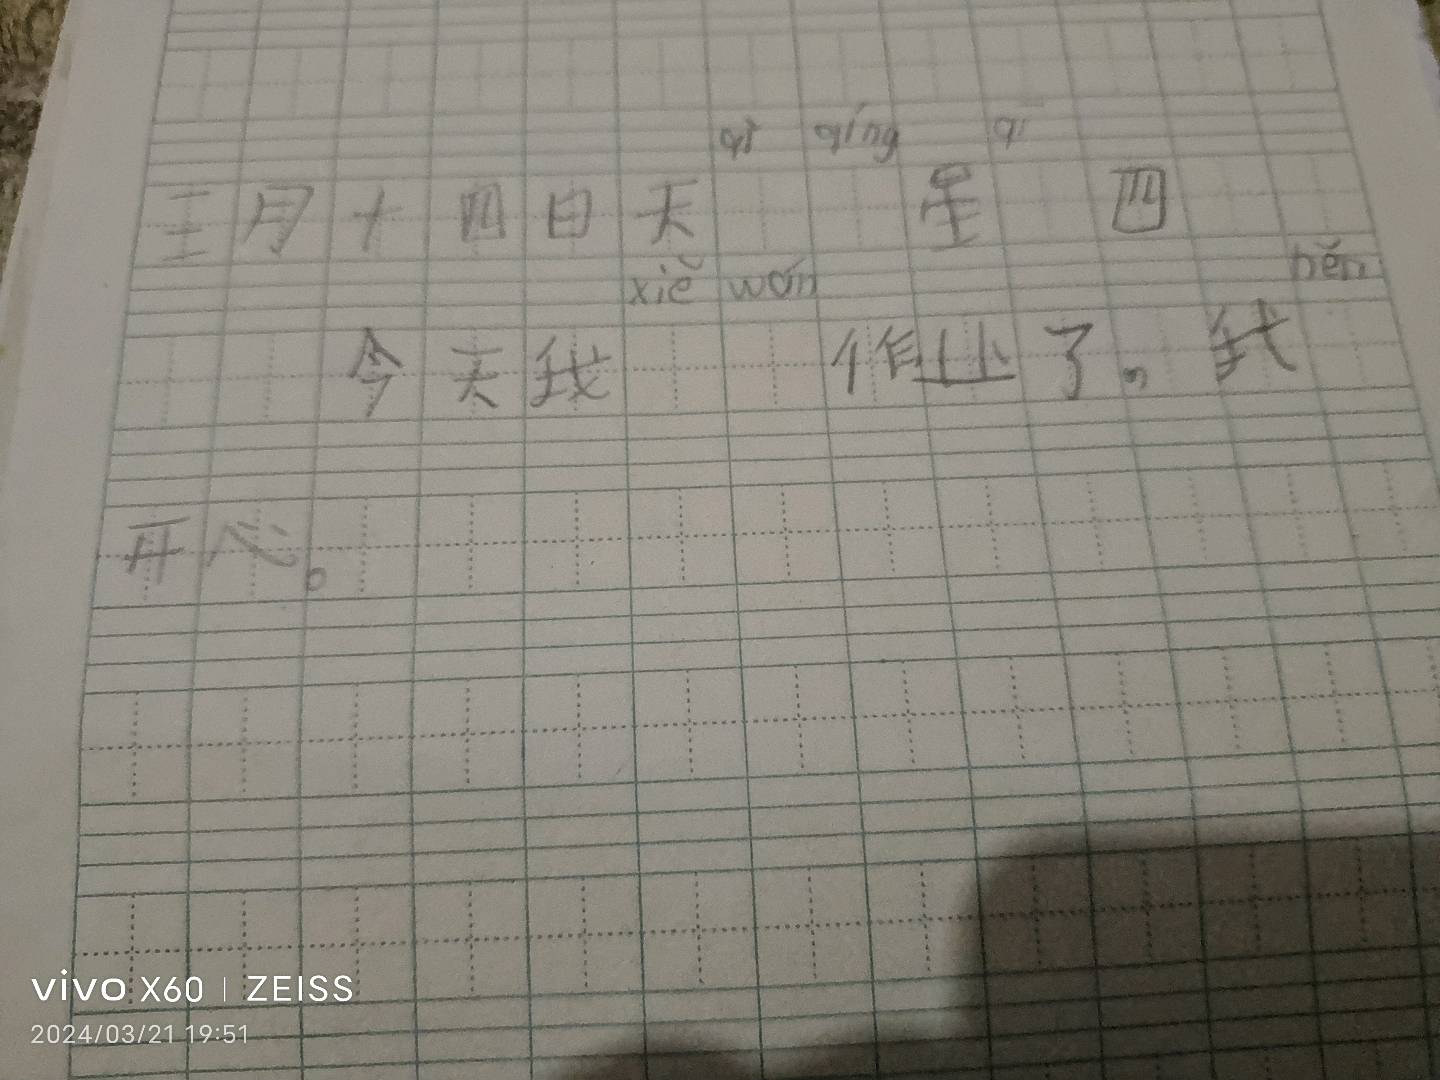 qì qíng qī
三月十四日天 星 四
xiě wán hěn
今天我 作业了，我
开心。
vivo X60 | ZEISS
2024/03/21 19:51